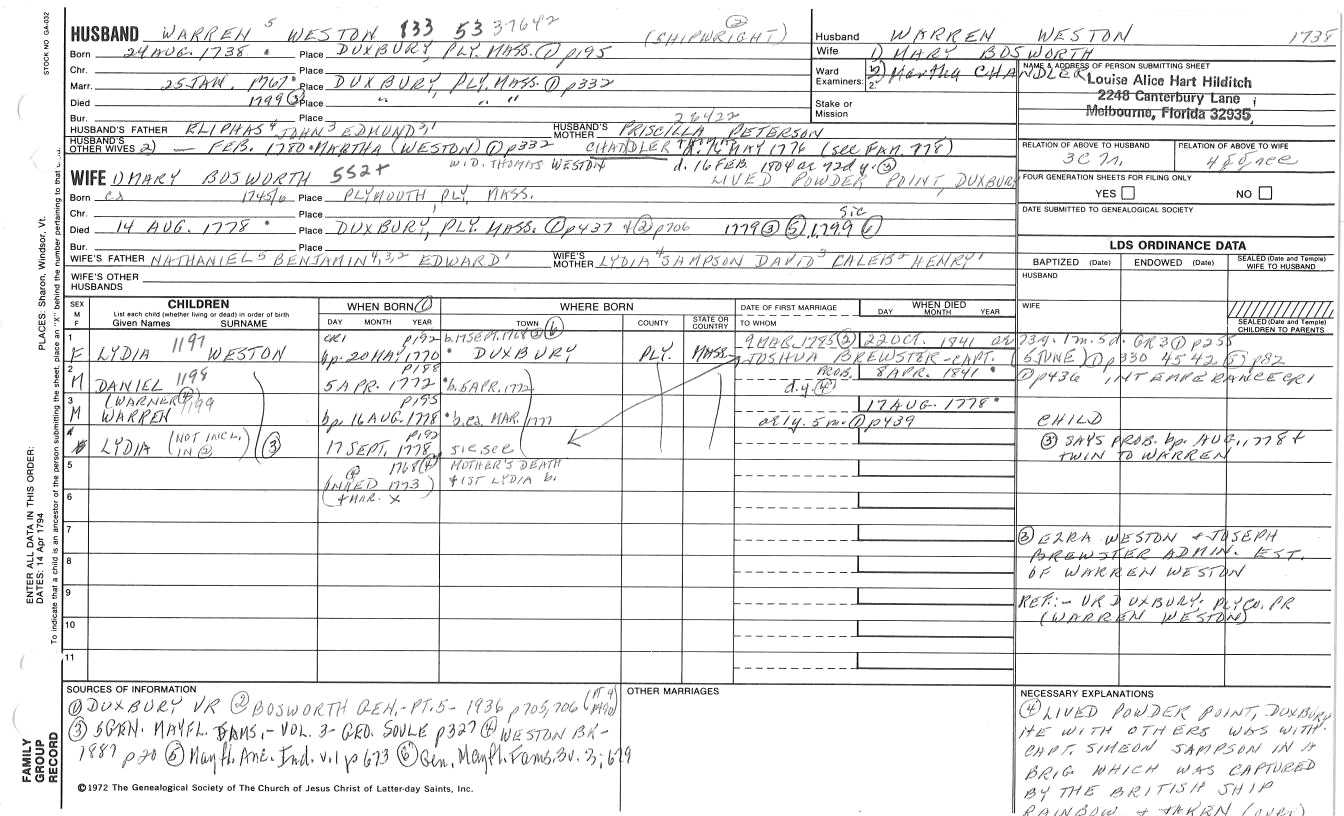 STOCK NO GA-032
HUSBAND WARREN 5 WESTON 833 53 37642 (SHIPWRIGHT) ②
Born 24 AUG. 1738 Place DUXBURY, PLY. MASS. ① p195
Chr. Place
Marr. 25 JAN. 1767 Place DUXBURY, PLY. MASS. ① p332
Died 1799 ③ Place " " "
Bur. Place
26422
HUSBAND'S FATHER ELIPHAS 4 JOHN 3 EDMUND 2,1 HUSBAND'S MOTHER PRISCILLA PETERSON
HUSBAND'S OTHER WIVES 2) — FEB. 1780 MARTHA (WESTON) ① p332 CHANDLER MAY 1776 (SEE FAM. 778)
WID. THOMAS WESTON d. 16 FEB. 1804 ae 72 d y. ③
WIFE 1) MARY BOSWORTH 552+ LIVED POWDER POINT, DUXBURY
Born ca 1745/6 Place PLYMOUTH, PLY, MASS.
Chr. Place
Died 14 AUG. 1778 Place DUXBURY, PLY. MASS. ① p437 & ② p706 1779 ③ ⑤, 1799 ⑥ SIC
Bur. Place
WIFE'S FATHER NATHANIEL 5 BENJAMIN 4,3,2 EDWARD 1 WIFE'S MOTHER LYDIA 4 SAMPSON DAVID 3 CALEB 2 HENRY 1
WIFE'S OTHER HUSBANDS
Husband WARREN WESTON 1738
Wife 1) MARY BOSWORTH
Ward Examiners: 1. 2. 2) Martha CHANDLER
Stake or Mission
NAME & ADDRESS OF PERSON SUBMITTING SHEET
Louise Alice Hart Hilditch
2248 Canterbury Lane
Melbourne, Florida 32935
RELATION OF ABOVE TO HUSBAND RELATION OF ABOVE TO WIFE
FOUR GENERATION SHEETS FOR FILING ONLY
YES NO
DATE SUBMITTED TO GENEALOGICAL SOCIETY
LDS ORDINANCE DATA
BAPTIZED (Date) ENDOWED (Date) SEALED (Date and Temple) WIFE TO HUSBAND
HUSBAND
WIFE
SEALED (Date and Temple) CHILDREN TO PARENTS
SEX M F CHILDREN List each child (whether living or dead) in order of birth Given Names SURNAME
WHEN BORN ① DAY MONTH YEAR
WHERE BORN TOWN ⑥ COUNTY STATE OR COUNTRY
DATE OF FIRST MARRIAGE TO WHOM
WHEN DIED DAY MONTH YEAR
1 GR1 p192 b. 17 SEPT. 1768 ③ ⑥ 9 MAR. 1785 ② 22 OCT. 1841 ae 73y. 1m. 5d. GR3 ① p255
F LYDIA 1197 WESTON bp. 20 MAY, 1770 DUXBURY PLY. MASS. JOSHUA BREWSTER - CAPT. (5 JUNE) ① p330 4542 ⑤ p82
2 p188 PROB. 8 APR. 1841 ① p436 INTEMPERANCE GR1
M DANIEL 1198 5 APR. 1772 b. 5 APR. 1772 d.y. ④
3 (WARNER ④) 1199 p195 17 AUG. 1778
M WARREN bp. 16 AUG. 1778 b. ca. MAR. 1777 ae 1y. 5 m. ① p439 CHILD
4 p192
LYDIA (NOT INCL. IN ②) ③ 17 SEPT. 1778 SIC, SEE ③ SAYS PROB. bp. AUG. 1778 & TWIN TO WARREN
5 1768 ④ MOTHER'S DEATH
(NAMED 1773) & 1ST LYDIA b.
6 (& MAR. X
7
8
9
10
11
③ EZRA WESTON & JOSEPH
BREWSTER ADMIN. EST.
OF WARREN WESTON
REF:- VR DUXBURY; PLY CO. PR
(WARREN WESTON)
SOURCES OF INFORMATION
① DUXBURY VR ② BOSWORTH GEN.- PT. 5 - 1936 p705, 706
③ 5GEN. MAYFL. FAMS.- VOL. 3- GEO. SOULE p327 ④ WESTON BK-
1987 p20 ⑤ Mayfl. Anc. Ind. v.1 p673 ⑥ Gen. Mayfl. Fams. 3v. 3; 679
©1972 The Genealogical Society of The Church of Jesus Christ of Latter-day Saints, Inc.
OTHER MARRIAGES
NECESSARY EXPLANATIONS
④ LIVED POWDER POINT, DUXBURY
HE WITH OTHERS WAS WITH
CAPT. SIMEON SAMPSON IN A
BRIG. WHICH WAS CAPTURED
BY THE BRITISH SHIP
RAINBOW & TAKEN (OVER)
PLACES: Sharon, Windsor, Vt.
ENTER ALL DATA IN THIS ORDER:
DATES: 14 Apr 1794
To indicate that a child is an ancestor of the person submitting the sheet, place an "X" behind the number pertaining to that
FAMILY GROUP RECORD